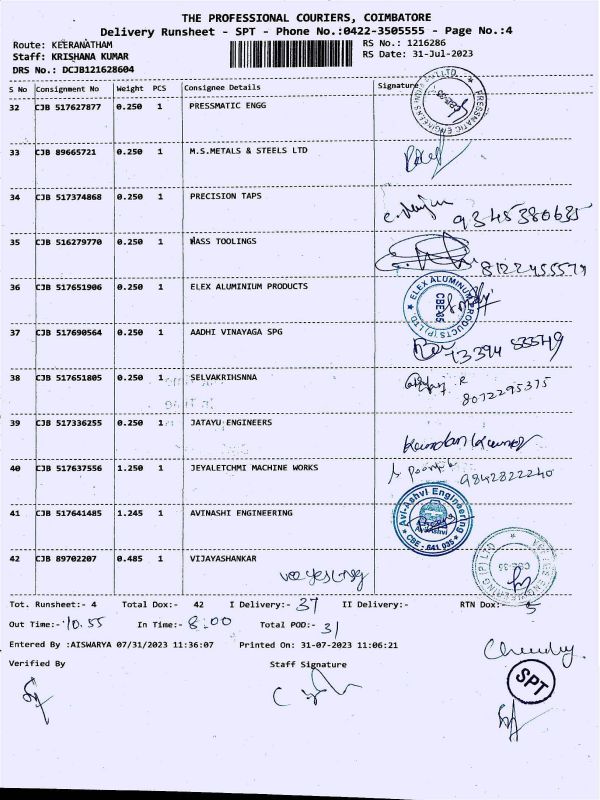 THE PROFESSIONAL COURIERS, COIMBATORE
Delivery Runsheet - SPT - Phone No.:0422-3505555 - Page No.:4
Route: KEERANATHAM RS No.: 1216286
Staff: KRISHANA KUMAR RS Date: 31-Jul-2023
DRS No.: DCJB121628604
S No Consignment No Weight PCS Consignee Details Signature
32 CJB 517627877 0.250 1 PRESSMATIC ENGG
33 CJB 89665721 0.250 1 M.S.METALS & STEELS LTD
34 CJB 517374868 0.250 1 PRECISION TAPS
9345380635
35 CJB 516279770 0.250 1 MASS TOOLINGS
8122455579
36 CJB 517651906 0.250 1 ELEX ALUMINIUM PRODUCTS
ELEX ALUMINIUM PRODUCTS (P) LTD. CBE-35
37 CJB 517690564 0.250 1 AADHI VINAYAGA SPG
73394 83549
38 CJB 517651805 0.250 1 SELVAKRIHSNNA
8072295375
39 CJB 517336255 0.250 1 JATAYU ENGINEERS
40 CJB 517637556 1.250 1 JEYALETCHMI MACHINE WORKS
9842822240
41 CJB 517641485 1.245 1 AVINASHI ENGINEERING
Avi-Ashvi Engineering Avi Ashvi CBE - 641 035
42 CJB 89702207 0.485 1 VIJAYASHANKAR
CBE-35
Tot. Runsheet:- 4 Total Dox:- 42 I Delivery:- 37 II Delivery:- RTN Dox:- 5
Out Time:- 10.55 In Time:- 8:00 Total POD:- 31
Entered By :AISWARYA 07/31/2023 11:36:07 Printed On: 31-07-2023 11:06:21
Verified By Staff Signature
SPT